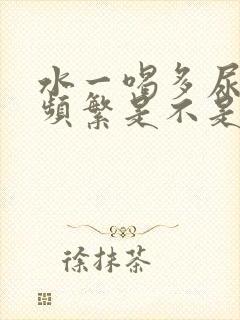 水一喝多尿
頻繁是不是
徐抹茶